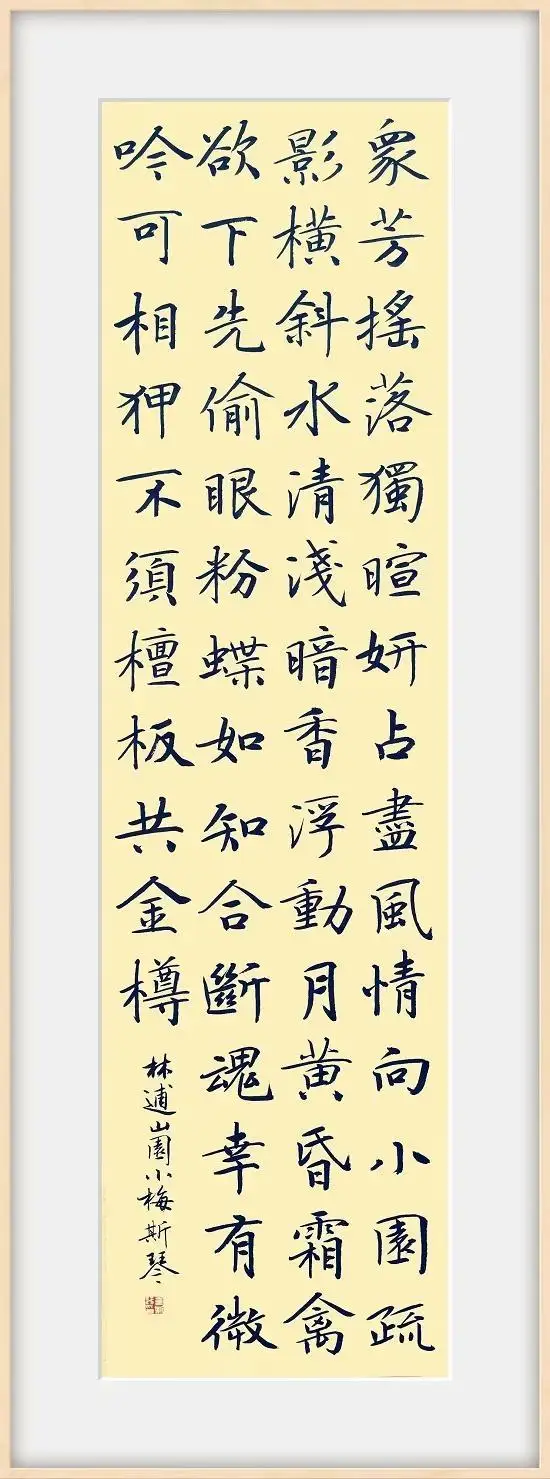 衆芳搖落獨暄妍占盡風情向小園疏
影橫斜水清淺暗香浮動月黃昏霜禽
欲下先偷眼粉蝶如知合斷魂幸有微
吟可相狎不須檀板共金樽
林逋山園小梅斯琴